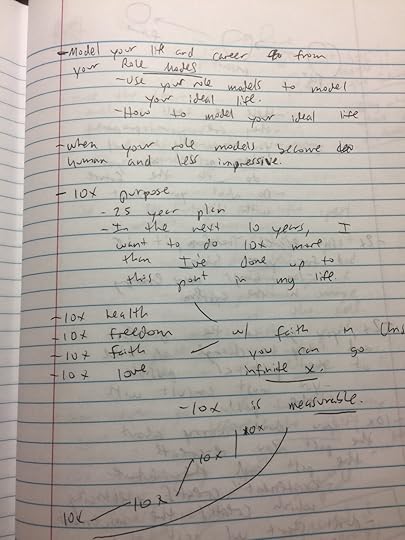 - Model your life and career from
your Role Models
- Use your role models to model
your ideal life.
- How to model your ideal life
- when your role models become
human and less impressive.
- 10x purpose
- 25 year plan
- In the next 10 years, I
want to do 10x more
than I've done up to
this point in my life
- 10x health
- 10x freedom w/ faith in
- 10x faith you can go
- 10x love infinite x.
- 10x is measurable.
10x
10x
10x
10x